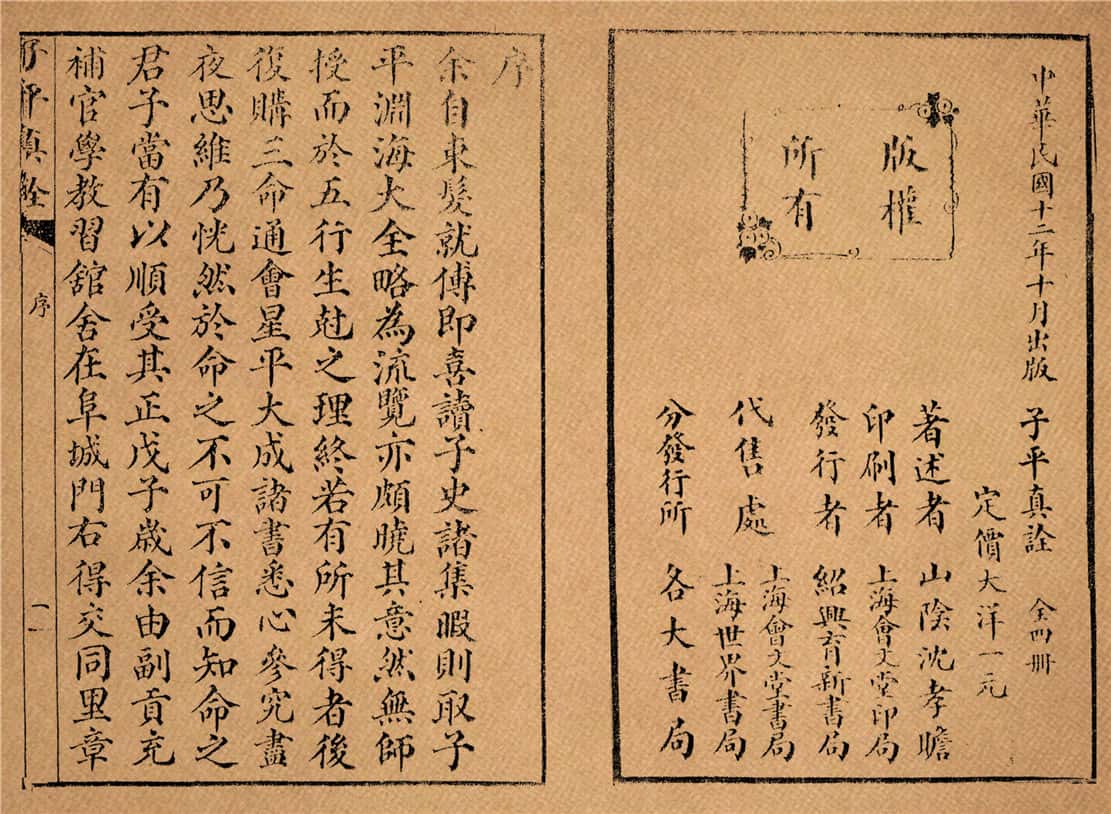 中華民國十二年十月出版
子平真詮 全四冊
定價大洋一元
版權
所有
著述者 山陰沈孝瞻
印刷者 上海會文堂印局
發行者 紹興育新書局
代售處 上海會文堂書局
上海世界書局
分發行所 各大書局
序
余自束髮就傅即喜讀子史諸集暇則取子
平淵海大全略為流覽亦頗曉其意然無師
授而於五行生尅之理終若有所未得者後
復購三命通會星平大成諸書悉心參究盡
夜思維乃恍然於命之不可不信而知命之
君子當有以順受其正戊子歲余由副貢充
補官學教習館舍在阜城門右得交同里章
子平真詮
序
一